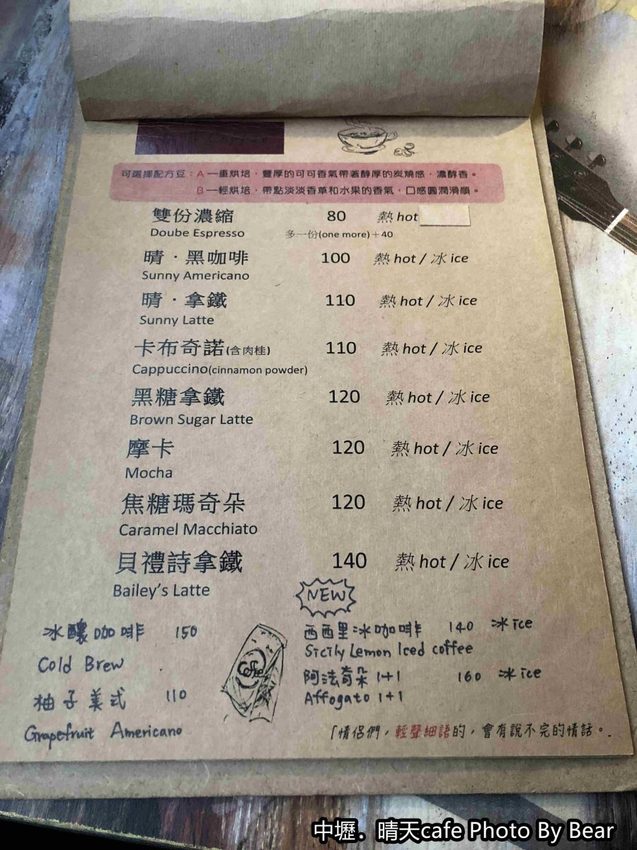 可選擇配方豆：A－重烘培，豐厚的可可香氣帶著醇厚的炭燒感，濃醇香。
B－輕烘培，帶點淡淡香草和水果的香氣，口感圓潤滑順。
雙份濃縮 80 熱 hot
Doube Espresso 多一份(one more)＋40
晴．黑咖啡 100 熱 hot / 冰 ice
Sunny Americano
晴．拿鐵 110 熱 hot / 冰 ice
Sunny Latte
卡布奇諾(含肉桂) 110 熱 hot / 冰 ice
Cappuccino(cinnamon powder)
黑糖拿鐵 120 熱 hot / 冰 ice
Brown Sugar Latte
摩卡 120 熱 hot / 冰 ice
Mocha
焦糖瑪奇朵 120 熱 hot / 冰 ice
Caramel Macchiato
貝禮詩拿鐵 140 熱 hot / 冰 ice
Bailey's Latte
NEW
冰釀咖啡 150
Cold Brew
柚子美式 110
Grapefruit Americano
Coffee
西西里冰咖啡 140 冰 ice
Sicily Lemon Iced coffee
阿法奇朵 1+1 160 冰 ice
Affogato 1+1
「情侶們，輕聲細語的，會有說不完的情話。
中壢．晴天cafe Photo By Bear